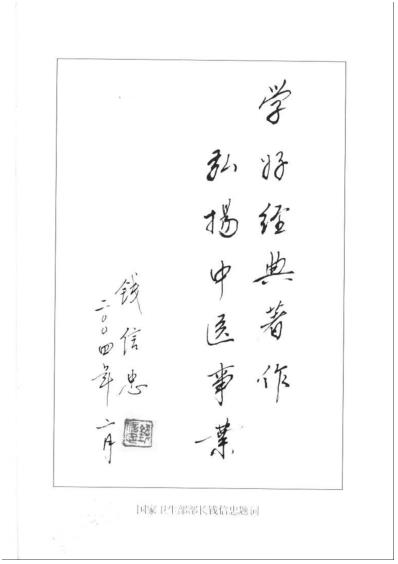 学好经典著作
弘揚中医事業
钱信忠
二〇〇四年二月
国家卫生部部长钱信忠题词